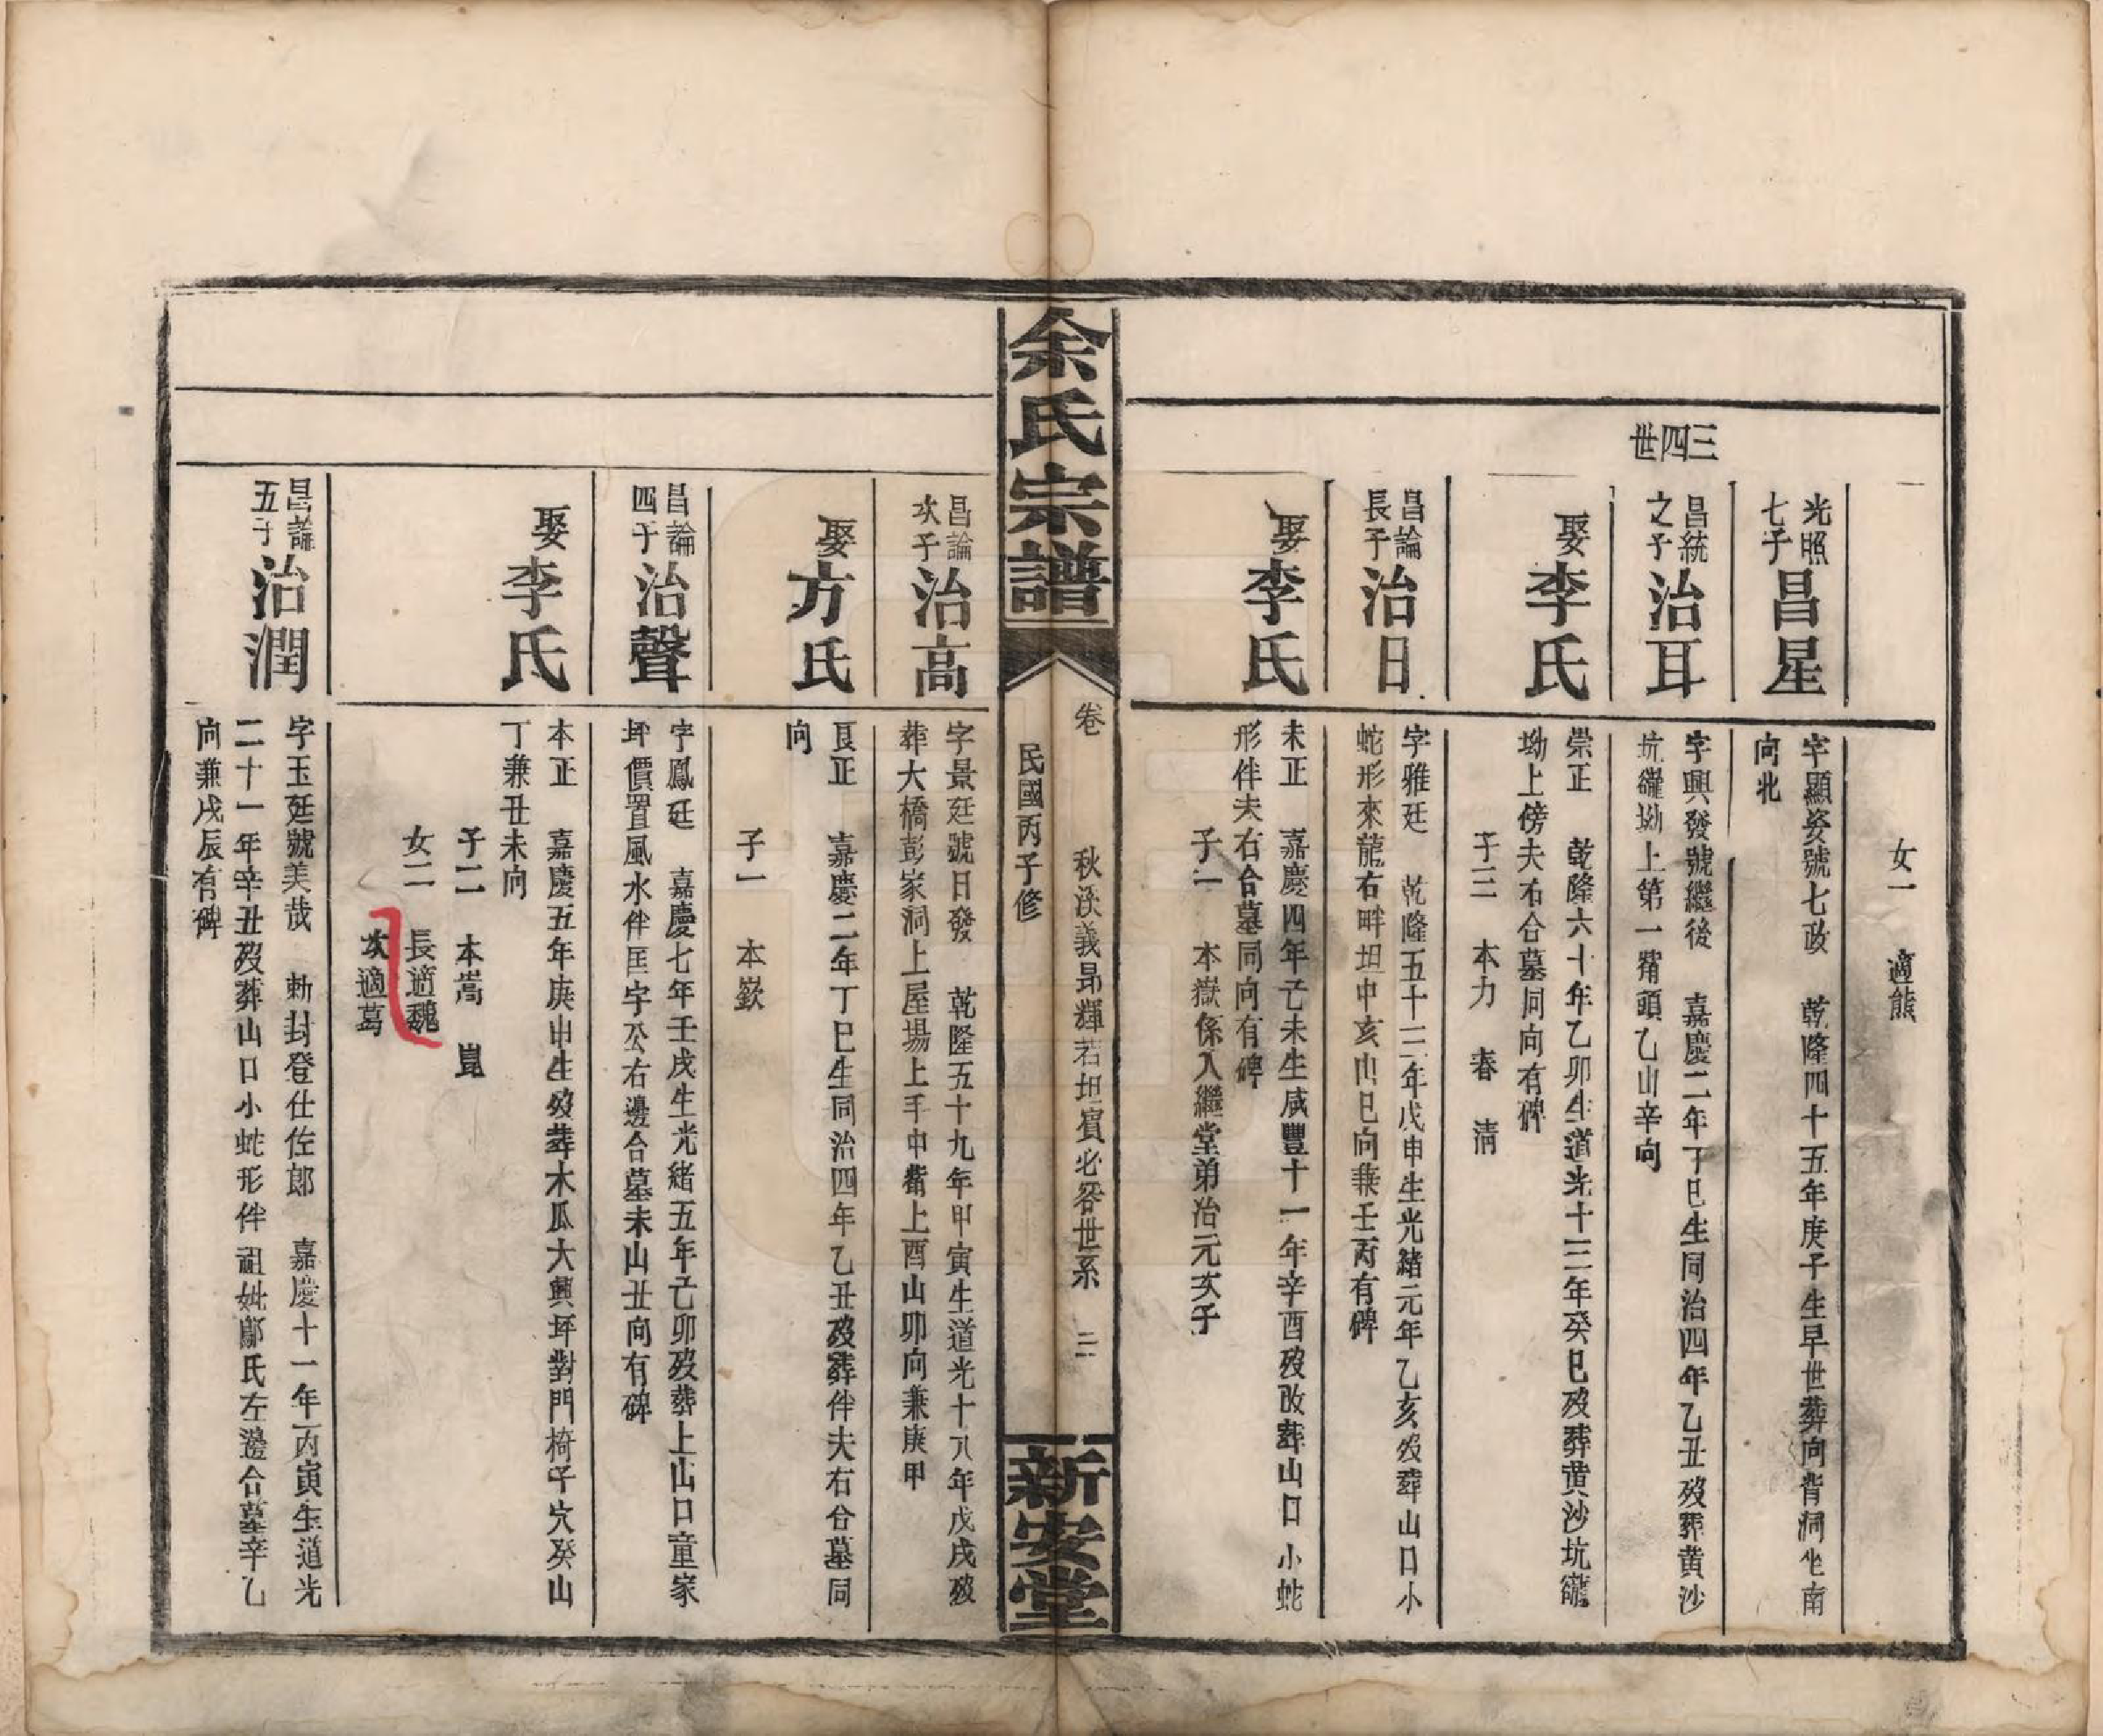 女一　適熊
光照
七子
昌星
字顯姿號七政　乾隆四十五年庚子生早世葬向背洞坐南
向北
三四世
昌統
之子
治耳
字興發號繼後　嘉慶二年丁巳生同治四年乙丑歿葬黄沙
坑𡾋坳上第一觜頭乙山辛向
娶李氏
崇正　乾隆六十年乙卯生道光十三年癸巳歿葬黄沙坑𡾋
坳上傍夫右合墓同向有碑
子三　本力　春　淸
昌論
長子
治日
字雅廷　乾隆五十三年戊申生光緒元年乙亥歿葬山口小
蛇形來龍右畔坦中亥山巳向兼壬丙有碑
娶李氏
未正　嘉慶四年己未生咸豐十一年辛酉歿改葬山口小蛇
形伴夫右合墓同向有碑
子一　本嶽係入繼堂弟治元次子
余氏宗譜
卷　秋溪義昴輝若坦賓必容世系　二
民國丙子修
新安堂
昌論
次子
治高
字景廷號日發　乾隆五十九年甲寅生道光十八年戊戌歿
葬大橋彭家洞上屋場上手中觜上酉山卯向兼庚甲
娶方氏
艮正　嘉慶二年丁巳生同治四年乙丑歿葬伴夫右合墓同
向
子一　本欽
昌論
四子
治聲
字鳳廷　嘉慶七年壬戌生光緒五年己卯歿葬上山口童家
坪價置風水伴匡字公右邊合墓未山丑向有碑
娶李氏
本正　嘉慶五年庚申生歿葬木瓜大興坪對門椅子穴癸山
丁兼丑未向
子二　本嵩　崑
女二　長適魏
次適葛
昌論
五子
治潤
字玉廷號美哉　勅封登仕佐郎　嘉慶十一年丙寅生道光
二十一年辛丑歿葬山口小蛇形伴祖妣鄺氏左邊合墓辛乙
向兼戌辰有碑